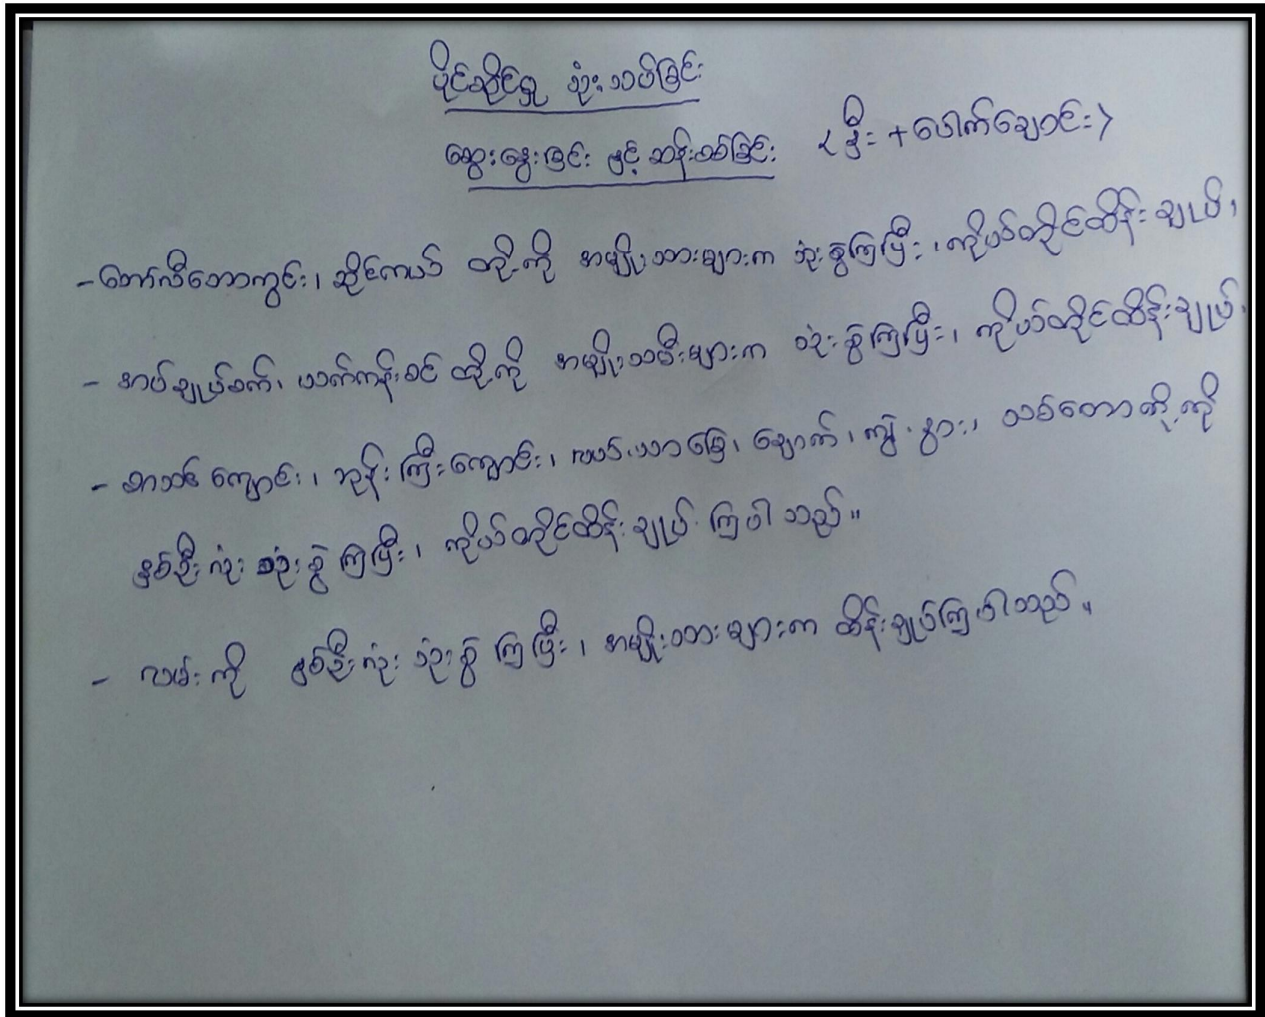 ပိုင်ဆိုင်မှု သုံးသပ်ခြင်း
ဆွေးနွေးခြင်း နှင့် ဆန်းစစ်ခြင်း < နှီး + ပေါက်ချောင်း >
- ဘော်လီဘောကွင်း၊ ဆိုင်ကယ် တို့ကို အမျိုးသားများက သုံးစွဲကြပြီး၊ ကိုယ်တိုင်ထိန်းချုပ်၊
- အပ်ချုပ်စက်၊ ယက်ကန်းစင် တို့ကို အမျိုးသမီးများက သုံးစွဲကြပြီး၊ ကိုယ်တိုင်ထိန်းချုပ်၊
- စာသင်ကျောင်း၊ ဘုန်းကြီးကျောင်း၊ လယ်ယာမြေ၊ ချောက်၊ ကျွဲ၊ နွား၊ သစ်တောတို့ကို
နှစ်ဦးလုံး သုံးစွဲကြပြီး၊ ကိုယ်တိုင်ထိန်းချုပ်ကြပါသည်။
- လမ်းကို နှစ်ဦးလုံး သုံးစွဲကြပြီး၊ အမျိုးသားများက ထိန်းချုပ်ကြပါသည်။